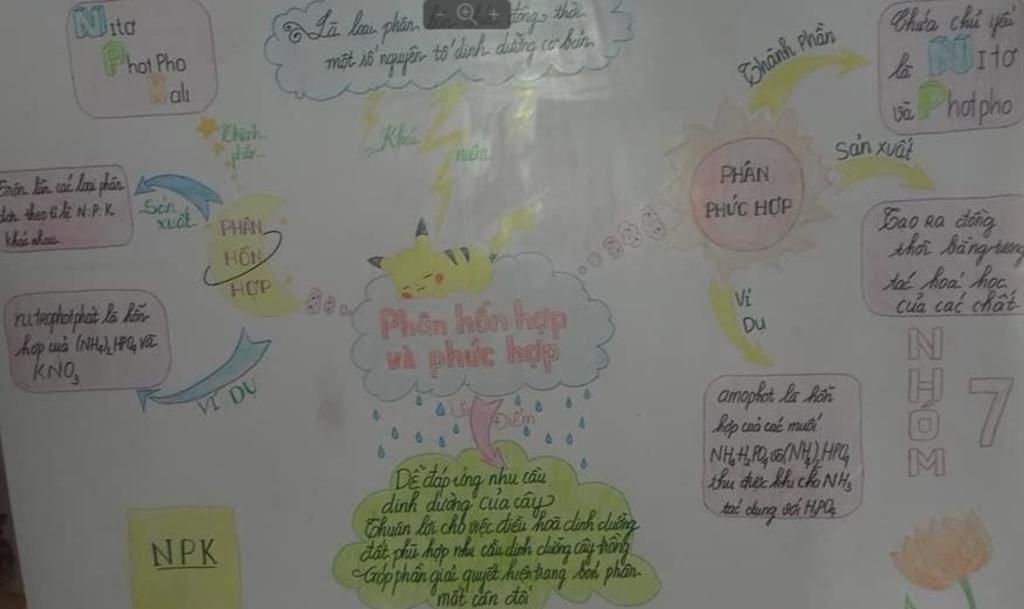 Nitơ
PhotPho
Kali
Là loại phân đồng thời
một số nguyên tố dinh dưỡng cơ bản
Thành phần
Chứa chủ yếu
là Nitơ
và Photpho
Thành
phần
Khái
niệm
Sản xuất
Trộn lẫn các loại phân
đơn theo tỉ lệ N.P.K
khác nhau
Sản
xuất
PHÂN
HỖN
HỢP
PHÂN
PHỨC HỢP
Tạo ra đồng
thời bằng tương
tác hoá học
của các chất
nitrophotphat là hỗn
hợp của (NH4)2HPO4 và
KNO3
VÍ DỤ
Phân hỗn hợp
và phức hợp
Ví
Dụ
amophot là hỗn
hợp của các muối
NH4H2PO4 và (NH4)2HPO4
thu được khi cho NH3
tác dụng với H3PO4
NHÓM
7
Điểm
Dễ đáp ứng nhu cầu
dinh dưỡng của cây
Thuận lợi cho việc điều hoà dinh dưỡng
đất phù hợp nhu cầu dinh dưỡng cây trồng
Góp phần giải quyết hiện trạng bón phân
mất cân đối
NPK